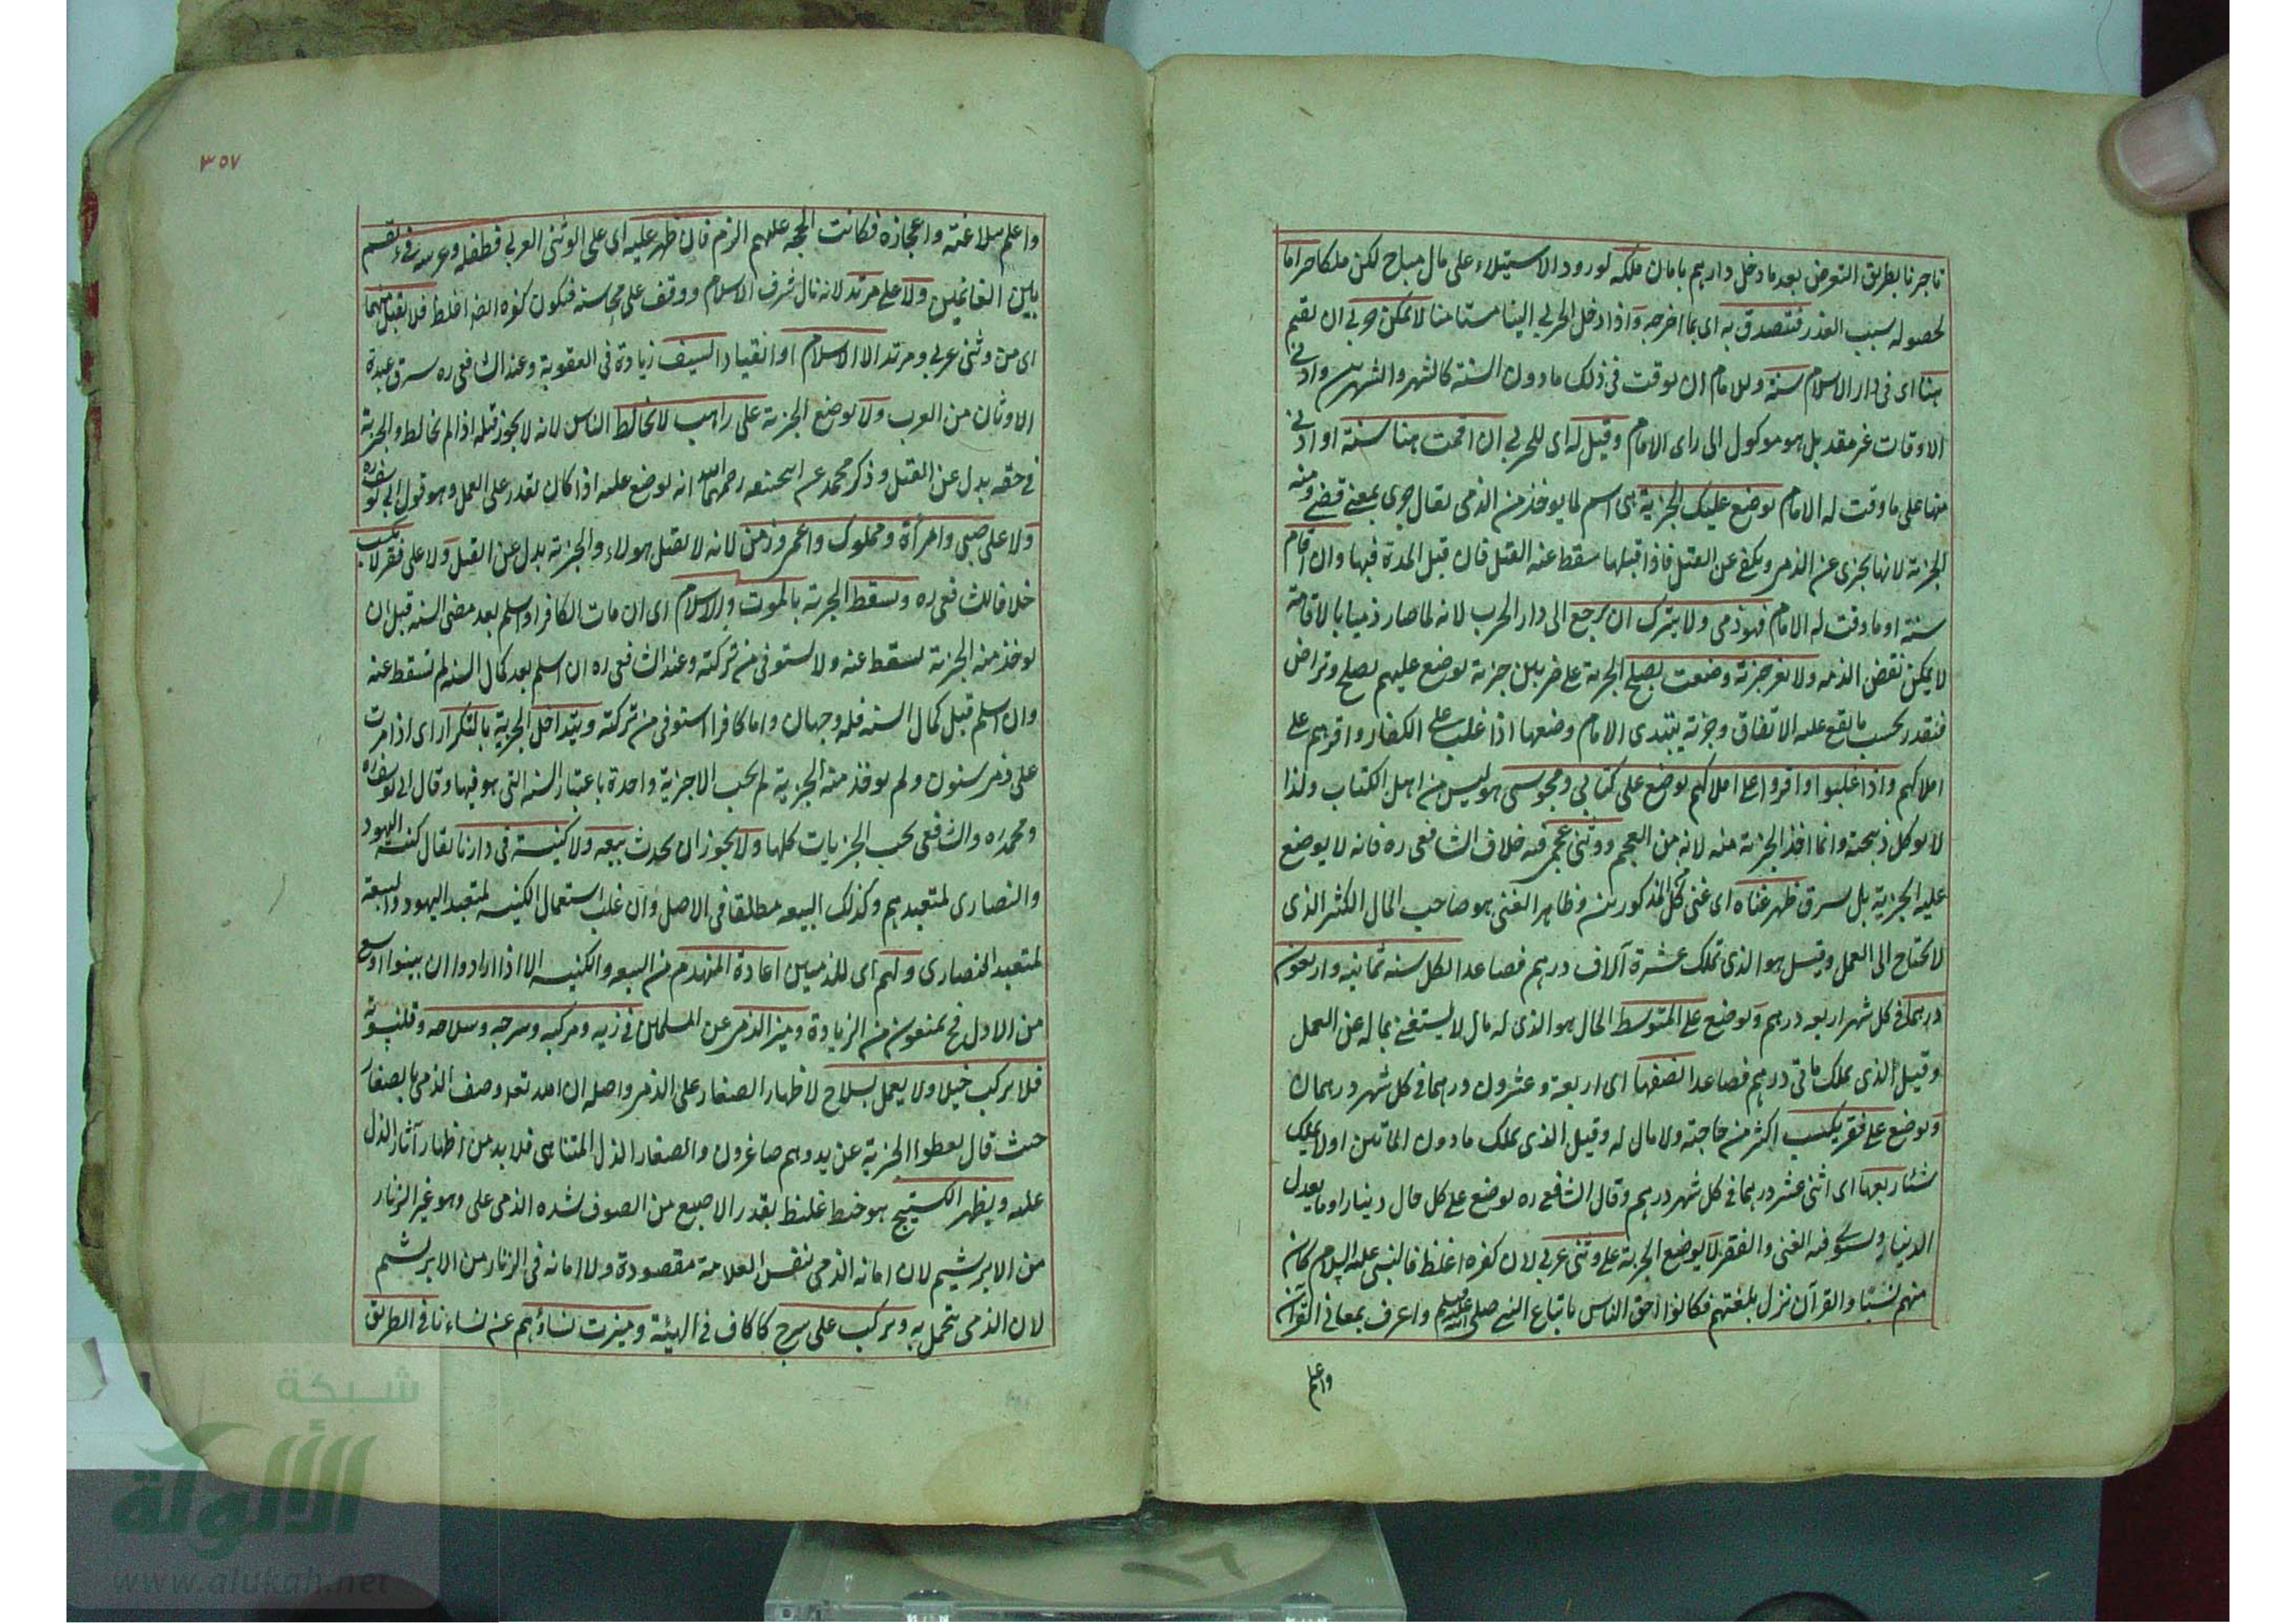 تاجرنا بطريق التعرض بعد ما دخل دارهم بامان ملكه لورود الاستيلاء على مال مباح لكن ملكا حراما
لحصوله بسبب الغدر فتصدق به اى بما اخرجه واذا دخل الحربي الينا مستامنا لا يمكن حربي ان يقيم
هنا اى فى دار الاسلام سنة وللامام ان يوقت فى ذلك ما دون السنة كالشهر والشهرين وادنى
الاوقات غير مقدر بل هو موكول الى راى الامام وقيل له اى للحربي ان اقمت هنا سنة او ادنى
منها على ما وقت له الامام يوضع عليك الجزية هى اسم لما يوخذ من الذمى يقال جزى بمعنى قضى ومنه
الجزية لانها تجزى عن الذمى ويكفى عن القتل فاذا قبلها سقط عنه القتل فان قبل المدة فيها وان اقام
سنة او ما وقت له الامام فهو ذمى ولا يترك ان يرجع الى دار الحرب لانه لما صار ذميا بالاقامة
لا يمكن نقض الذمة ولا يغير جزية وضعت بصلح الجزية على ضربين جزية توضع عليهم بصلح وتراض
فتقدر بحسب ما يقع عليه الاتفاق وجزية يبتدى الامام وضعها اذا غلب على الكفار واقرهم على
املاكهم واذا غلبوا واقروا على املاكهم يوضع على كتابى ومجوسى هو ليس من اهل الكتاب ولذا
لا يوكل ذبيحته وانما اخذ الجزية منه لانه من العجم ووثنى عجمى فيه خلاف الشافعى ره فانه لا يوضع
عليه الجزية بل يسرق ظهر غناه اى غنى كل المذكورين وظاهر الغنى هو صاحب المال الكثير الذى
لا يحتاج الى العمل وقيل هو الذى تملك عشرة آلاف درهم فصاعدا لكل سنة ثمانية واربعون
درهما فى كل شهر اربعة درهم ويوضع على المتوسط الحال هو الذى له مال لا يستغنى بماله عن العمل
وقيل الذى يملك ماتى درهم فصاعدا نصفها اى اربعة وعشرون درهما فى كل شهر درهمان
ويوضع على فقير يكتسب اكثر من حاجته ولا مال له وقيل الذى يملك ما دون الماتين اولا يملك
شئا ربعها اى اثنى عشر درهما فى كل شهر درهم وقال الشافعى ره يوضع على كل حال دينارا وما يعدل
الدينار ويستوى فيه الغنى والفقير لا يوضع الجزية على وثنى عربى لان كفره اغلظ فالنبى عليه السلام كان
منهم نسبا والقرآن نزل بلغتهم فكانوا احق الناس باتباع النبى صلى الله عليه وسلم واعرف بمعانى القرآن
واعلم
٣٥٧
واعلم ببلاغته واعجازه فكانت الحجة عليهم الزم فان ظهر عليه اى على الوثنى العربى فطفله وعرسه فىء يقسم
بين الغانمين ولا على مرتد لانه نال شرف الاسلام ووقف على محاسنه فيكون كفره ايضا اغلظ فلا يقبل منهما
اى من وثنى عربى ومرتد الا الاسلام او انقياد السيف زيادة فى العقوبة وعند الشافعى ره يسرق عبدة
الاوثان من العرب ولا يوضع الجزية على راهب لا يخالط الناس لانه لا يجوز قتله اذا لم يخالط والجزية
فى حقه بدل عن القتل وذكر محمد عن ابى حنيفة رحمهما الله انه يوضع عليه اذا كان يقدر على العمل وهو قول ابى يوسف ره
ولا على صبى وامرأة ومملوك واعمى وزمن لانه لا يقتل هولاء والجزية بدل عن القتل ولا على فقير لا يكسب
خلافا للشافعى ره ويسقط الجزية بالموت والاسلام اى ان مات الكافر او اسلم بعد مضى السنة قبل ان
يوخذ منه الجزية يسقط عنه ولا يستوفى من تركته وعند الشافعى ره ان اسلم بعد كمال السنة لم تسقط عنه
وان اسلم قبل كمال السنة فله وجهان واما كافرا استوفى من تركته ويتداخل الجزية بالتكرار اى اذا مرت
على ذمى سنون ولم يوخذ منه الجزية لم يجب الا جزية واحدة باعتبار السنة التى هو فيها وقال ابى يوسف ره
ومحمد ره والشافعى يجب الجزيات كلها ولا يجوز ان يحدث بيعة ولا كنيسة فى دارنا يقال كنيسة اليهود
والنصارى لمتعبدهم وكذلك البيعة مطلقا فى الاصل وان غلب استعمال الكنيسة لمتعبد اليهود والبيعة
لمتعبد النصارى ولهم اى للذميين اعادة المنهدم من البيعة والكنيسة الا اذا ارادوا ان يبنوا اوسع
من الاول فح يمنعون من الزيادة وميز الذمى عن المسلمين فى زيه ومركبه وسرجه وسلاحه وقلنسوته
فلا يركب خيلا ولا يعمل بسلاح لاظهار الصغار على الذمى واصله ان الله تعالى وصف الذمى بالصغار
حيث قال يعطوا الجزية عن يد وهم صاغرون والصغار الذل المتناهى فلا بد من اظهار آثار الذل
عليه ويظهر الكستيج هو خيط غليظ بقدر الاصبع من الصوف شده الذمى على وهو غير الزنار
من الابريشيم لان امانة الذمى بنفس العلامة مقصودة ولا امانة فى الزنار من الابريشيم
لان الذمى يتحمل به ويركب على سرج كاكاف فى الهيئة وميزت نساؤهم عن نساءنا فى الطريق
شبكة
الألوكة
www.alukah.net